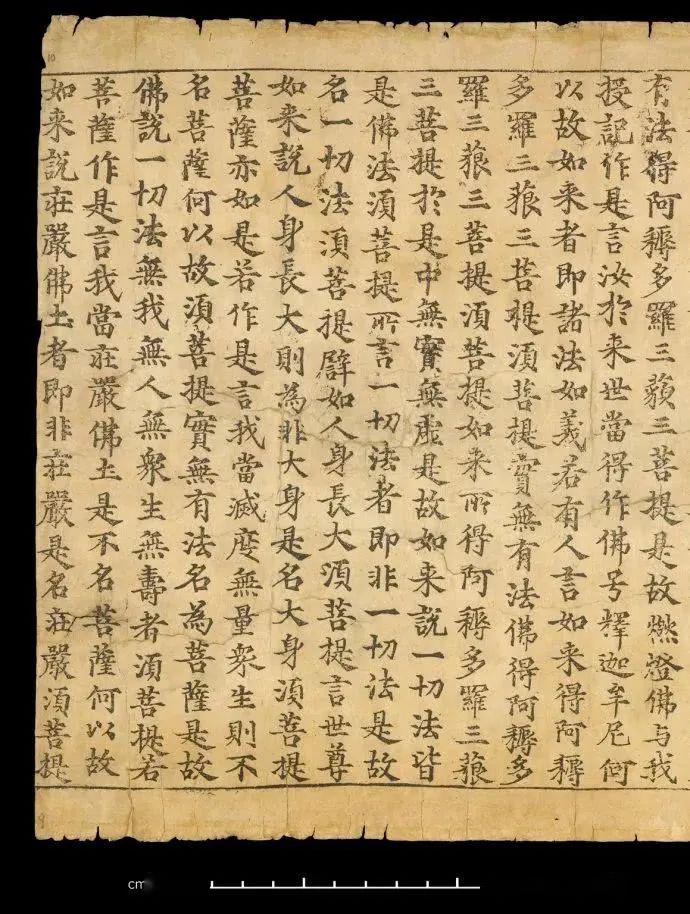 有法得阿耨多羅三藐三菩提是故燃燈佛与我
授記作是言汝於来世當得作佛号釋迦牟尼何
以故如来者即諸法如義若有人言如来得阿耨
多羅三藐三菩提湏菩提實無有法佛得阿耨多
羅三藐三菩提湏菩提如来所得阿耨多羅三藐
三菩提於是中無實無虛是故如来說一切法皆
是佛法湏菩提所言一切法者即非一切法是故
名一切法湏菩提譬如人身長大湏菩提言世尊
如来說人身長大則為非大身是名大身湏菩提
菩薩亦如是若作是言我當滅度無量衆生則不
名菩薩何以故湏菩提實無有法名為菩薩是故
佛說一切法無我無人無衆生無壽者湏菩提若
菩薩作是言我當莊嚴佛土是不名菩薩何以故
如来說莊嚴佛土者即非莊嚴是名莊嚴湏菩提
10
cm